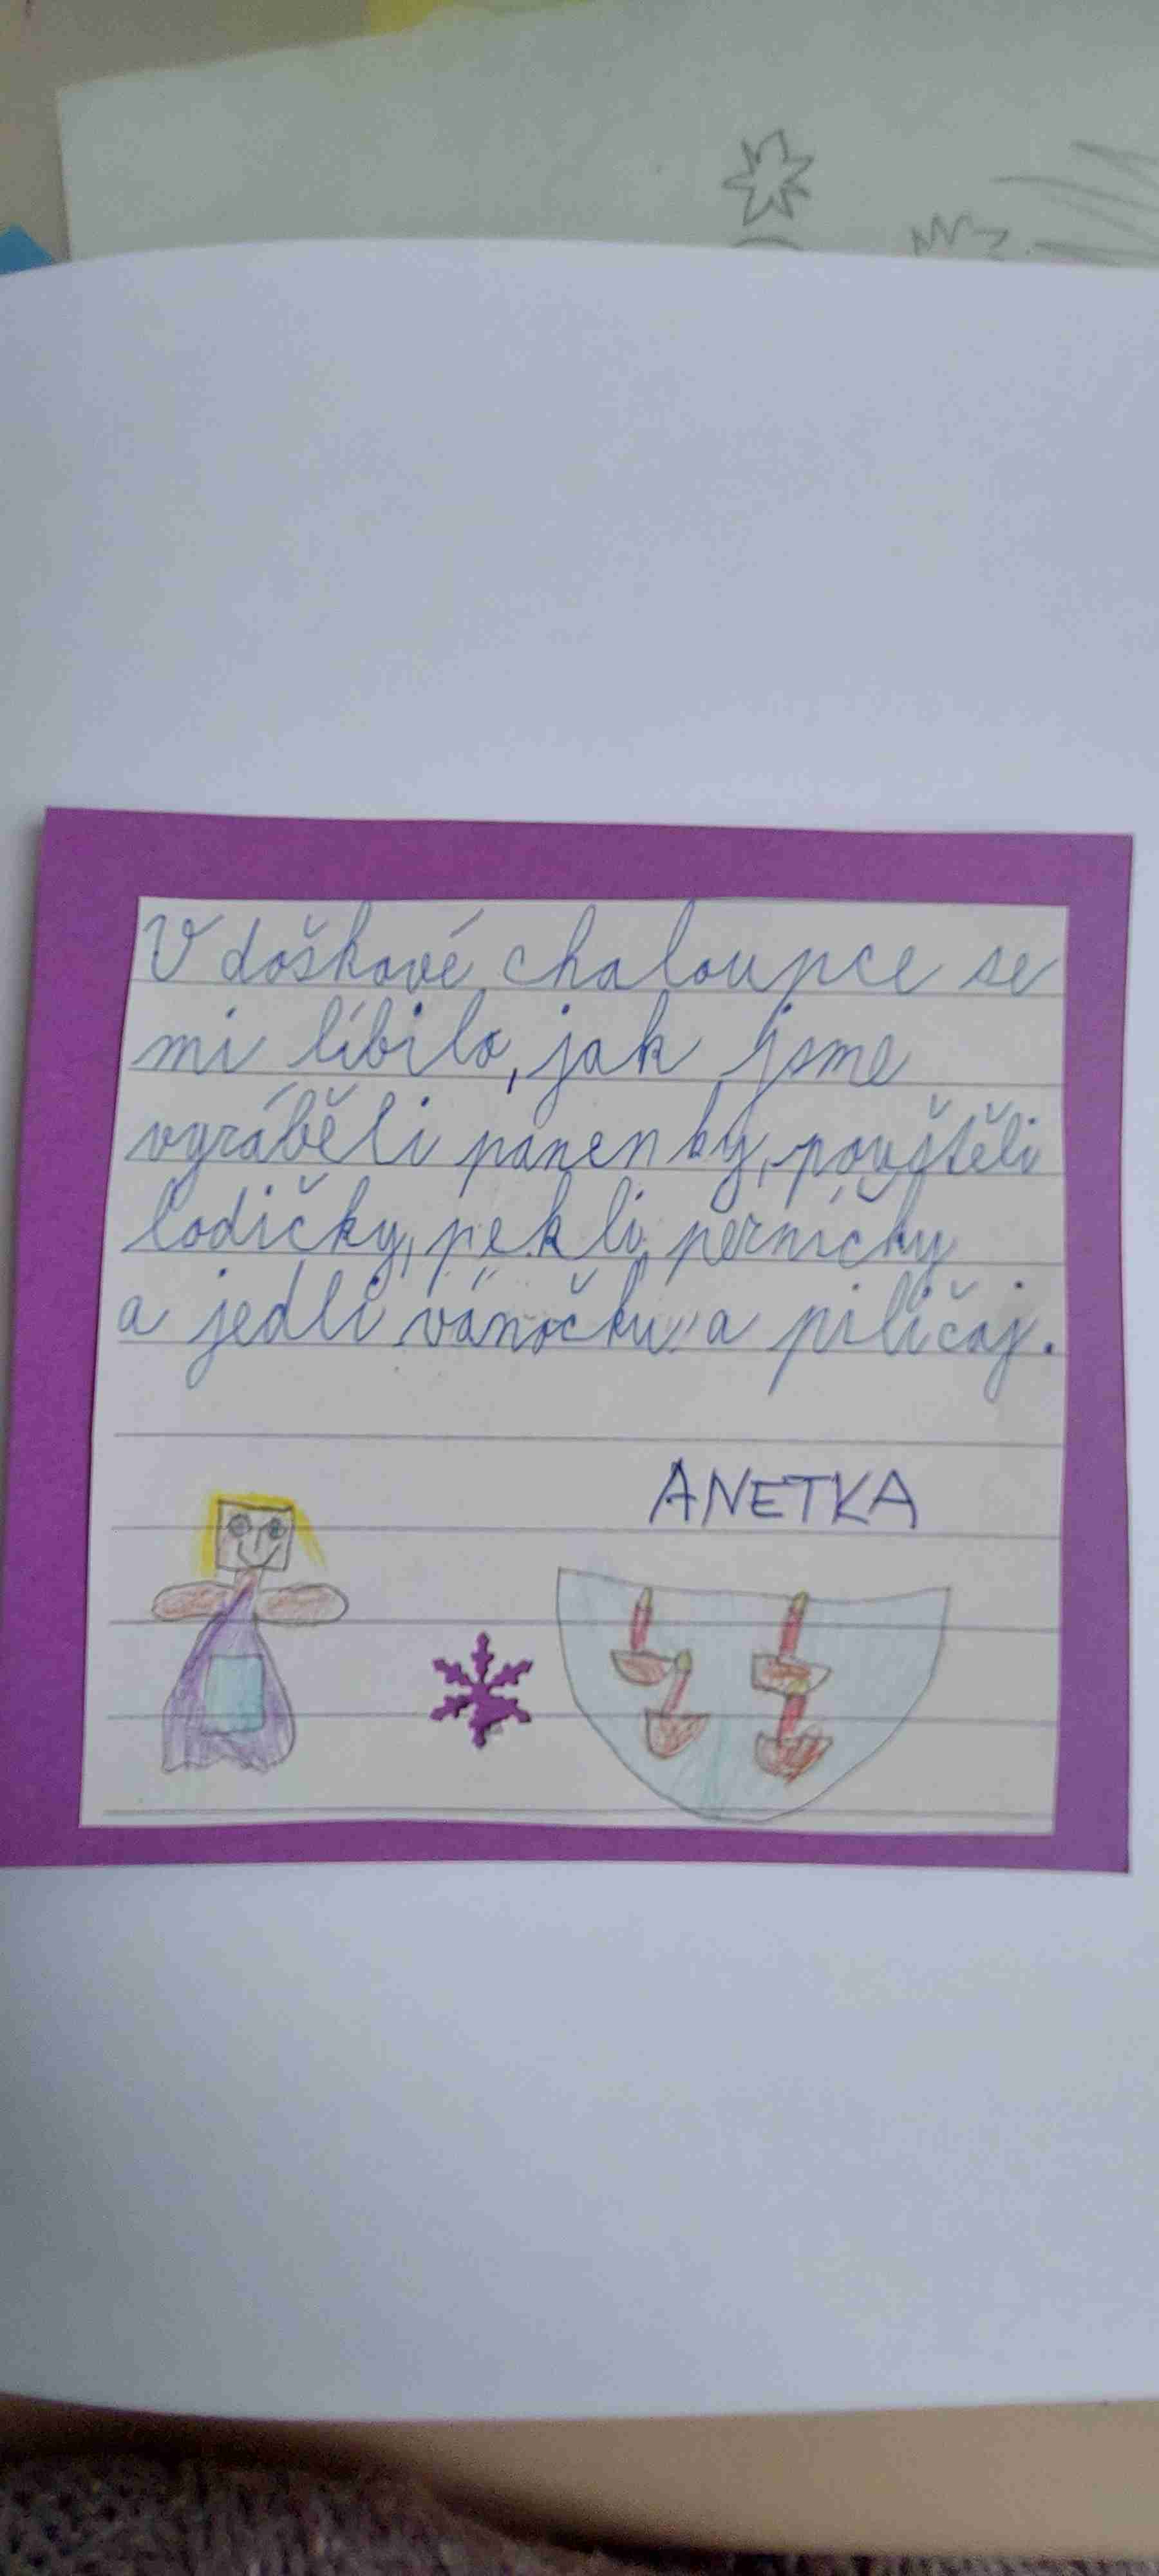 V doškové chaloupce se
mi líbilo, jak jsme
vyráběli panenky, pouštěli
lodičky, pekli perníčky
a jedli vánočku a pili čaj.
ANETKA